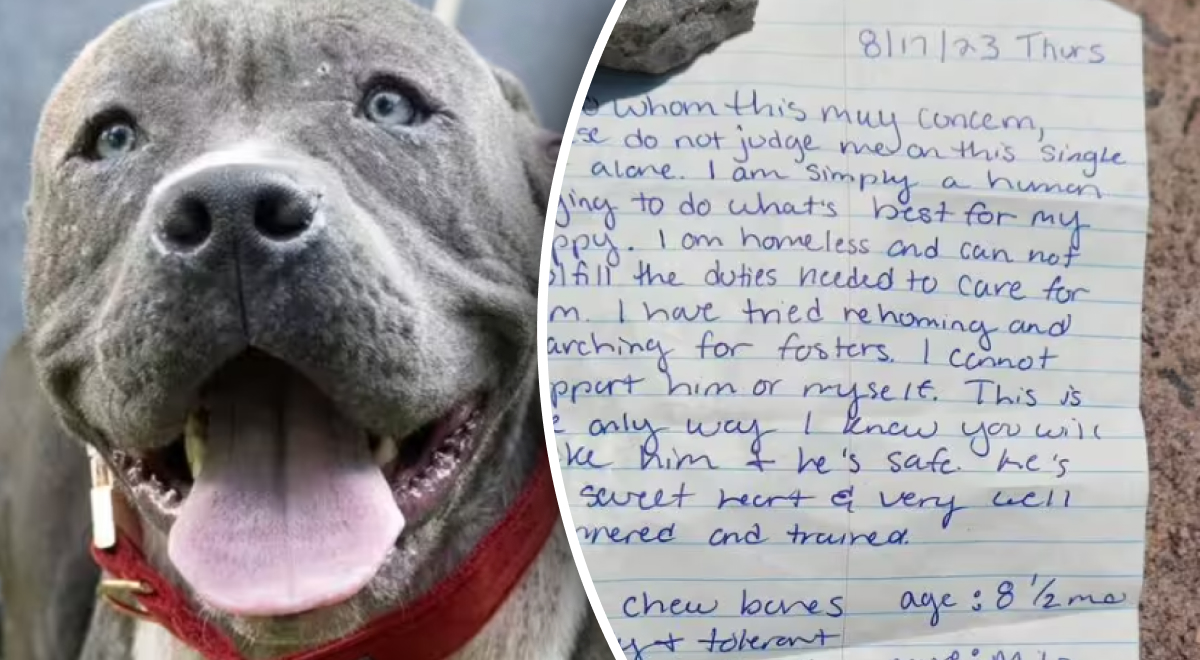 8/17/23 Thurs
whom this muy concern,
se do not judge me on this single
alone. I am simply a human
ying to do what's best for my
ppy. I am homeless and can not
lfill the duties needed to care for
m. I have tried rehoming and
arching for fosters. I cannot
pport him or myself. This is
e only way I know you will
ke him & he's safe. he's
sweet heart & very well
nnered and trained.
chew bones age: 8 1/2 mo
y + tolerant